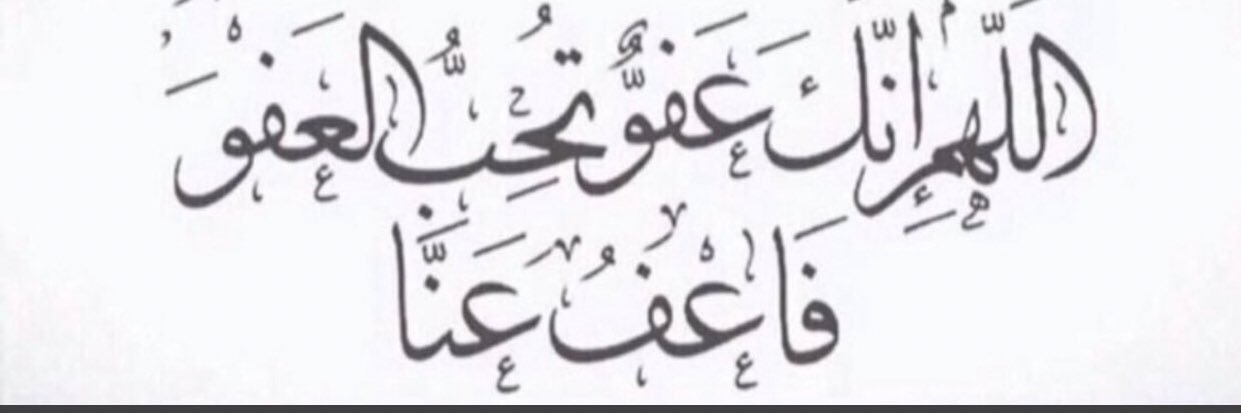 اللّهمّ إنّك عفوٌّ تُحِبُّ العفوَ
فَاعْفُ عَنَّا